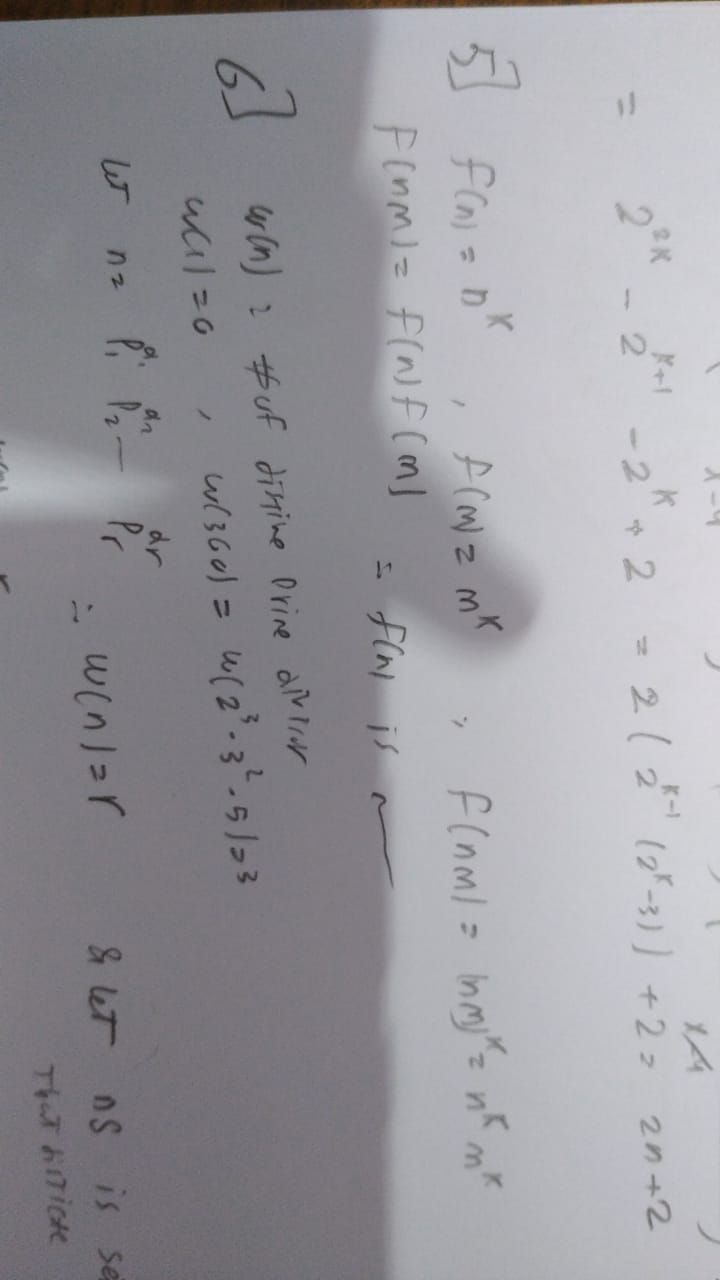 = 2^{2k} - 2^{k+1} - 2^k + 2 = 2(2^{k-1}(2^k-3)) + 2 = 2n+2
5] f(n) = n^k , f(m) = m^k , f(nm) = (nm)^k = n^k m^k
f(nm) = f(n) f(m) ∴ f(n) is
6] w(n) : # of distinc Prime divisor
w(1) = 0 , w(360) = w(2^3 · 3^2 · 5) = 3
let n = p_1^{a_1} p_2^{a_2} — p_r^{a_r} ∴ w(n) = r & let ns is
That